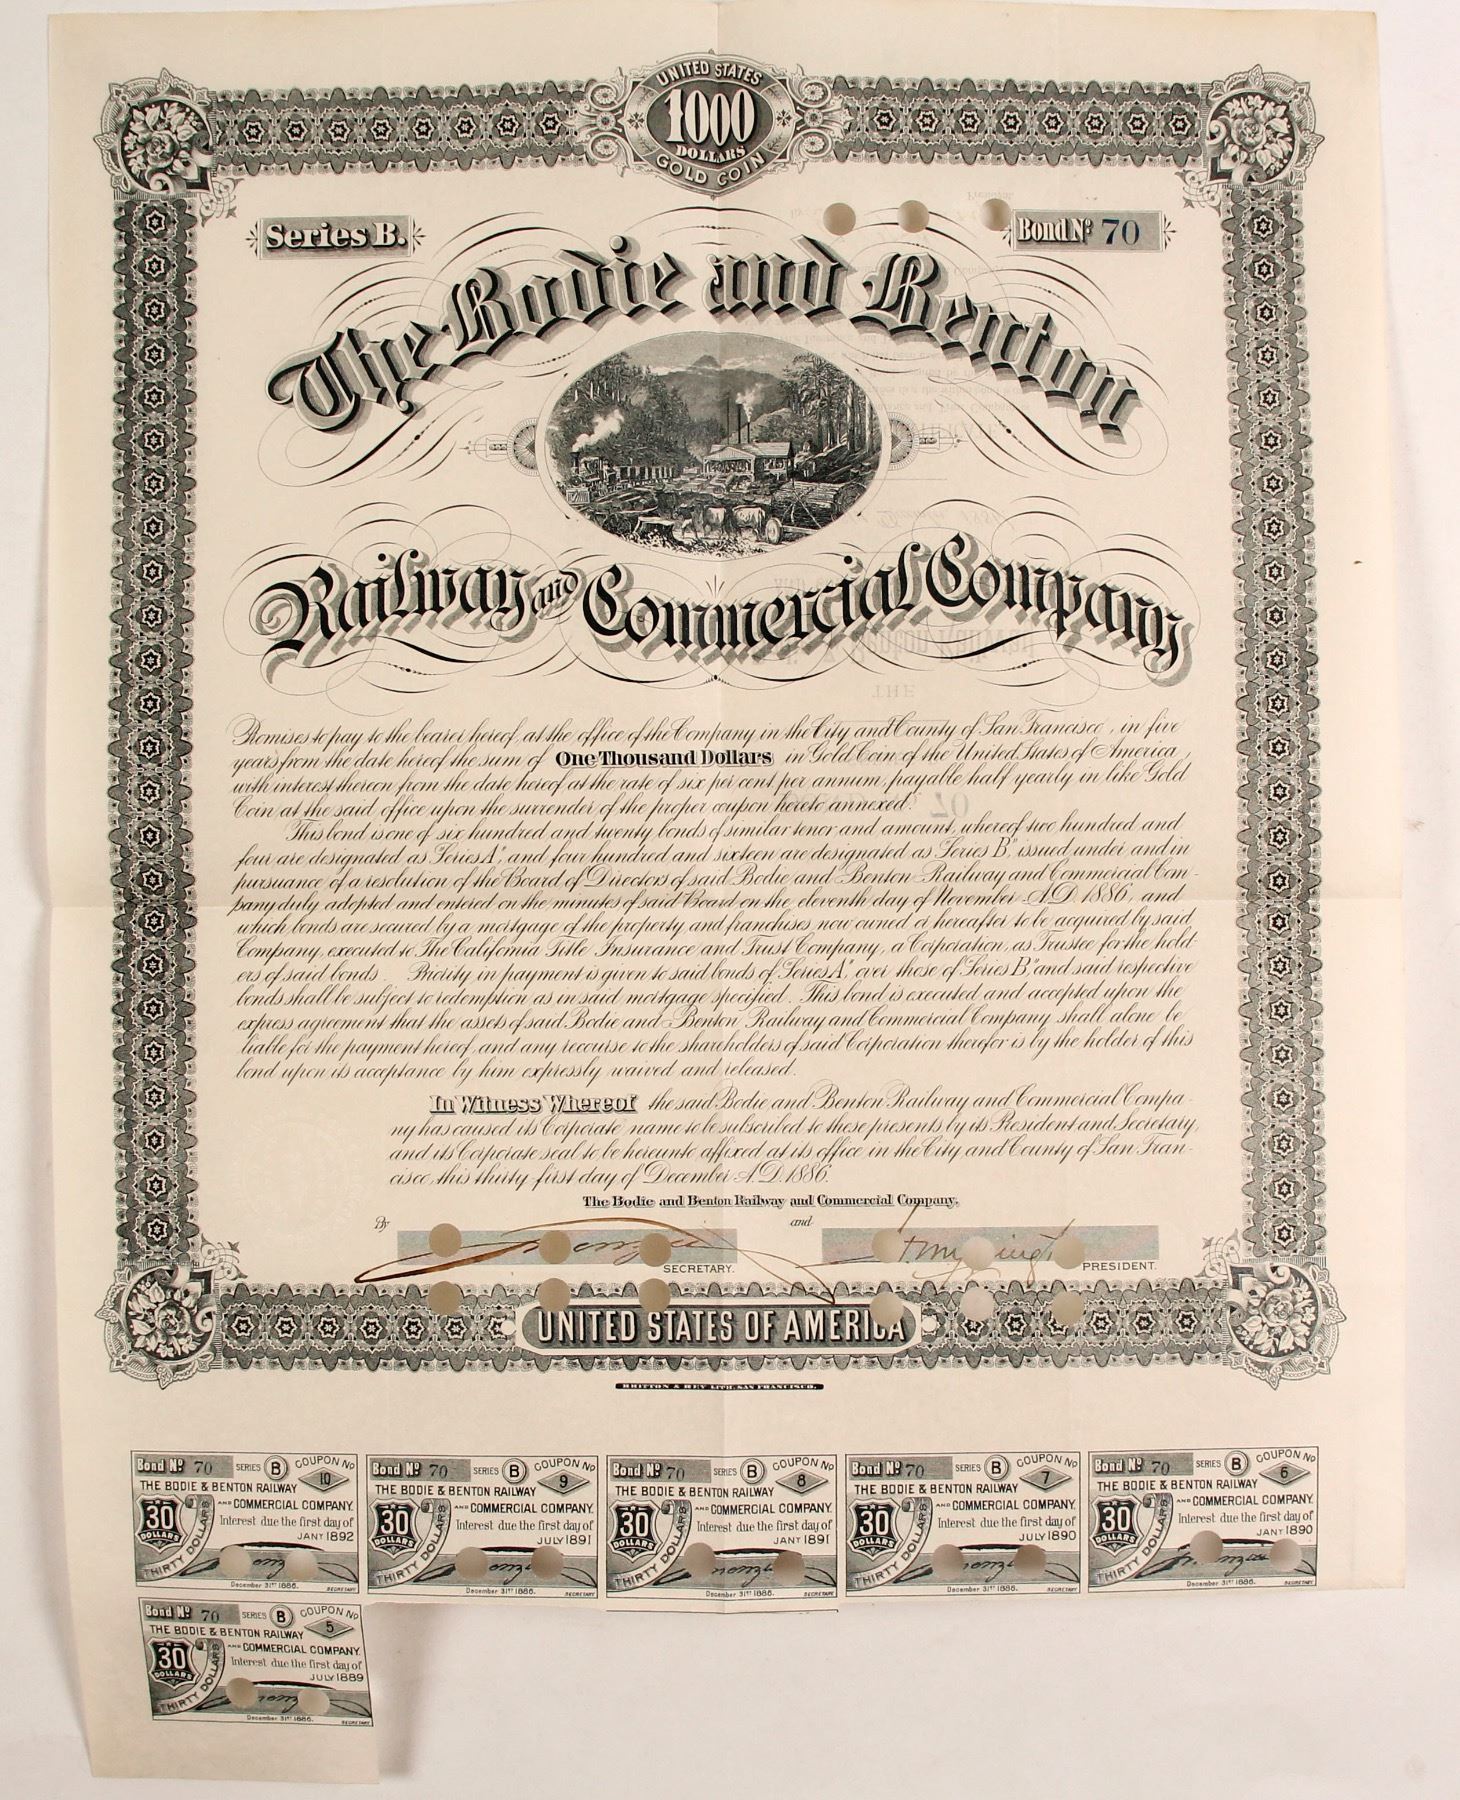 UNITED STATES
1000
DOLLARS
GOLD COIN
Series B.
Bond No 70
The Bodie and Benton
Railway and Commercial Company
Promises to pay to the bearer hereof, at the office of the Company in the City and County of San Francisco, in five
years from the date hereof the sum of One Thousand Dollars in Gold Coin of the United States of America,
with interest thereon from the date hereof at the rate of six per cent per annum, payable half yearly in like Gold
Coin, at the said office upon the surrender of the proper coupon hereto annexed.
This bond is one of six hundred and twenty bonds of similar tenor and amount, whereof two hundred and
four are designated as "Series A", and four hundred and sixteen are designated as "Series B", issued under and in
pursuance of a resolution of the Board of Directors of said Bodie and Benton Railway and Commercial Com-
pany duly adopted and entered on the minutes of said Board on the eleventh day of November A.D. 1886, and
which bonds are secured by a mortgage of the property and franchises now owned or hereafter to be acquired by said
Company, executed to The California Title Insurance and Trust Company, a Corporation, as Trustee for the hold-
ers of said bonds. Priority in payment is given to said bonds of "Series A" over those of "Series B", and said respective
bonds shall be subject to redemption as in said mortgage specified. This bond is executed and accepted upon the
express agreement that the assets of said Bodie and Benton Railway and Commercial Company shall alone be
liable for the payment hereof, and any recourse to the shareholders of said Corporation therefor is by the holder of this
bond upon its acceptance by him expressly waived and released.
In Witness Whereof the said Bodie and Benton Railway and Commercial Compa-
ny has caused its Corporate name to be subscribed to these presents by its President and Secretary,
and its Corporate seal to be hereunto affixed at its office in the City and County of San Fran-
cisco, this thirty-first day of December A.D. 1886.
The Bodie and Benton Railway and Commercial Company.
By
SECRETARY.
and
PRESIDENT.
UNITED STATES OF AMERICA
BRITTON & REY LITH. SAN FRANCISCO.
Bond No 70 SERIES B COUPON NO 10
THE BODIE & BENTON RAILWAY
AND COMMERCIAL COMPANY.
30
DOLLARS
THIRTY DOLLARS
Interest due the first day of
JANY 1892
December 31st 1886.
SECRETARY
Bond No 70 SERIES B COUPON NO 9
THE BODIE & BENTON RAILWAY
AND COMMERCIAL COMPANY.
30
DOLLARS
THIRTY DOLLARS
Interest due the first day of
JULY 1891
December 31st 1886.
SECRETARY
Bond No 70 SERIES B COUPON NO 8
THE BODIE & BENTON RAILWAY
AND COMMERCIAL COMPANY.
30
DOLLARS
THIRTY DOLLARS
Interest due the first day of
JANY 1891
December 31st 1886.
SECRETARY
Bond No 70 SERIES B COUPON NO 7
THE BODIE & BENTON RAILWAY
AND COMMERCIAL COMPANY.
30
DOLLARS
THIRTY DOLLARS
Interest due the first day of
JULY 1890
December 31st 1886.
SECRETARY
Bond No 70 SERIES B COUPON NO 6
THE BODIE & BENTON RAILWAY
AND COMMERCIAL COMPANY.
30
DOLLARS
THIRTY DOLLARS
Interest due the first day of
JANY 1890
December 31st 1886.
SECRETARY
Bond No 70 SERIES B COUPON NO 5
THE BODIE & BENTON RAILWAY
AND COMMERCIAL COMPANY.
30
DOLLARS
THIRTY DOLLARS
Interest due the first day of
JULY 1889
December 31st 1886.
SECRETARY